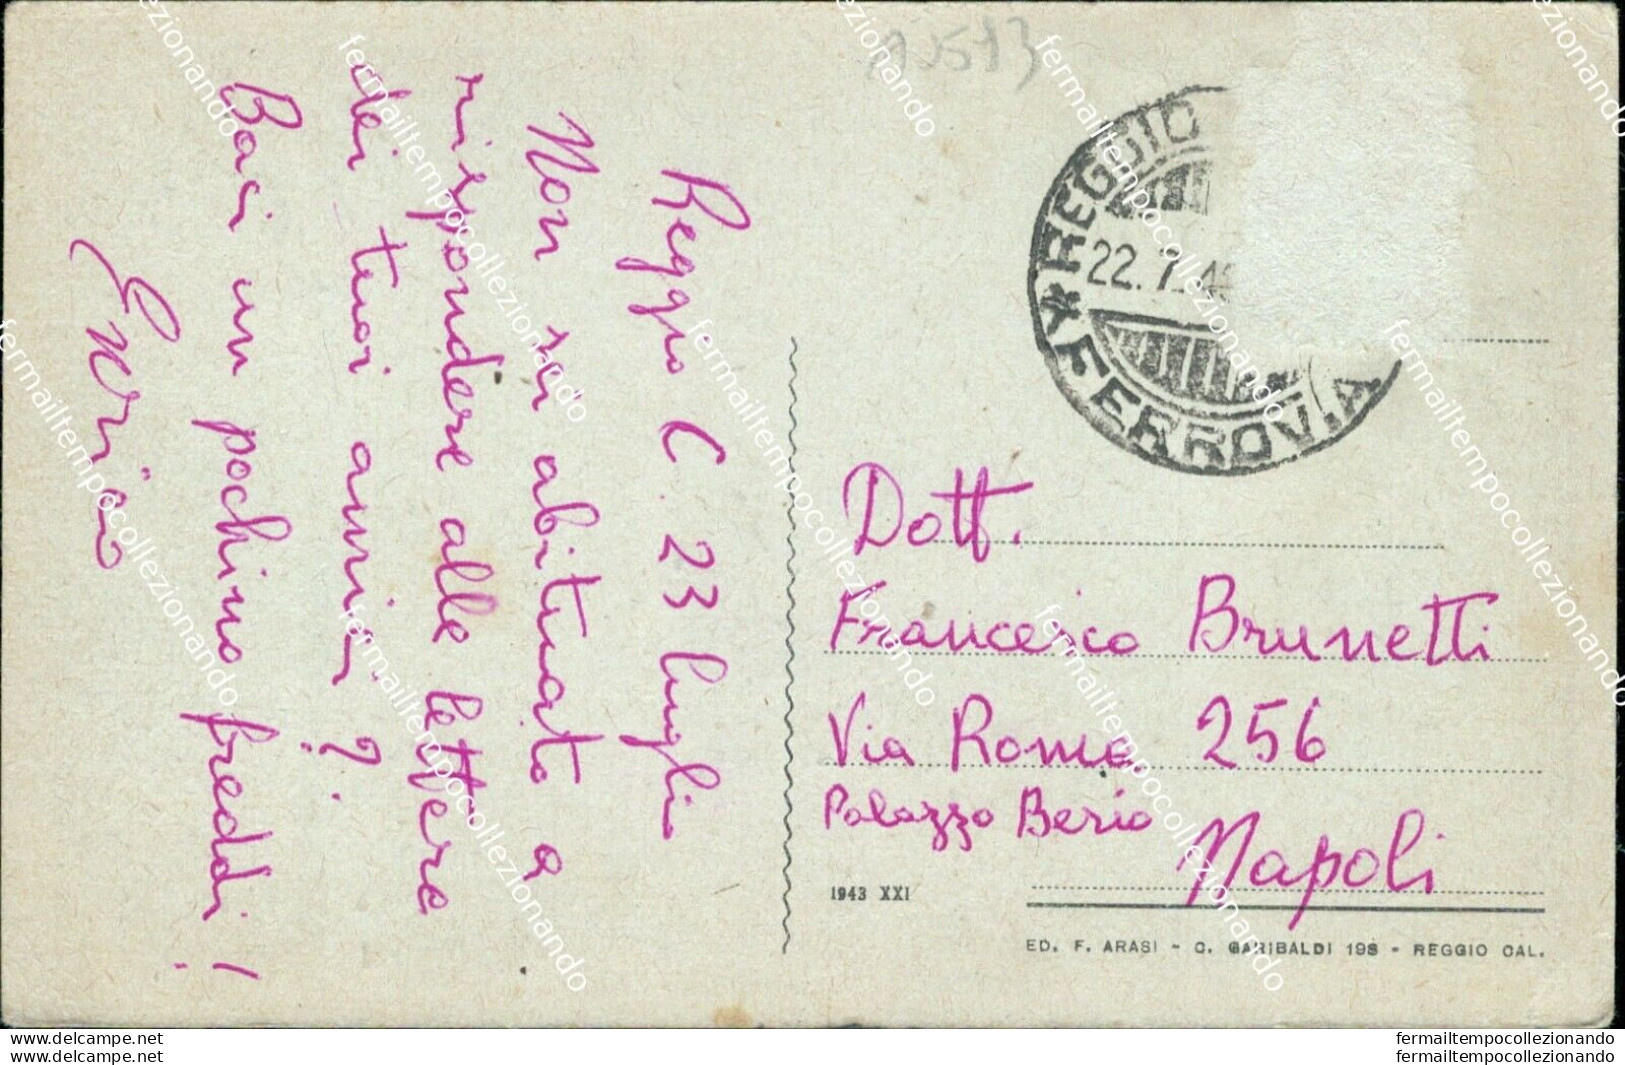 Reggio C. 23 luglio
Non sei abituato a
rispondere alle lettere
dei tuoi amici?
Baci un pochino freddi!
Enrico
REGGIO
22.7.4
* FERROVIA
Dott.
Francesco Brunetti
Via Roma 256
Palazzo Berio
Napoli
1943 XXI
ED. F. ARASI - C. GARIBALDI 198 - REGGIO CAL.
fermailtempocollezionando
fermailtempocollezionando
delcampe.net
delcampe.net
fermailtempocollezionando
fermailtempocollezionando